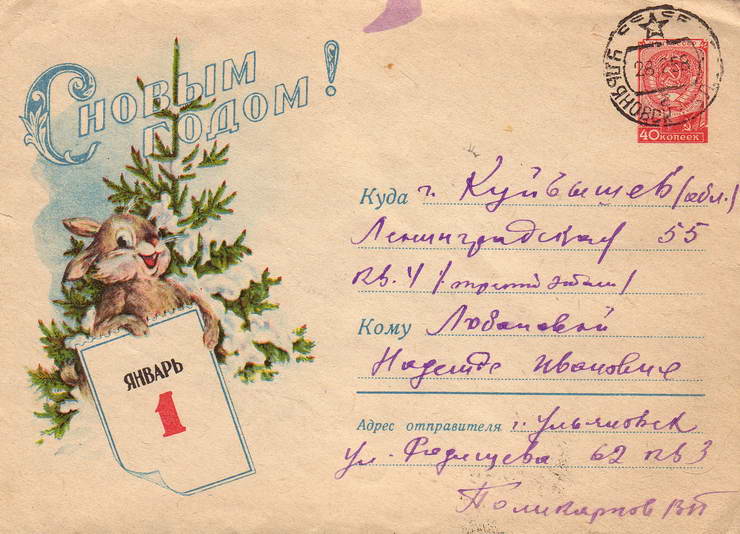 С НОВЫМ
ГОДОМ!
28 58
УЛЬЯНОВСК
40 КОПЕЕК
Куда г. Куйбышев (обл.)
Ленинградская 55
кв. 4 (третий этаж)
Кому Любановой
Надежде Ивановне
ЯНВАРЬ
1
Адрес отправителя г. Ульяновск
ул. Радищева 62 кв 3
Поликарпов ВП